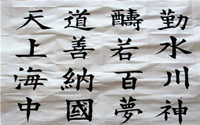 天道醻勤
上善若水
海納百川
中國夢神